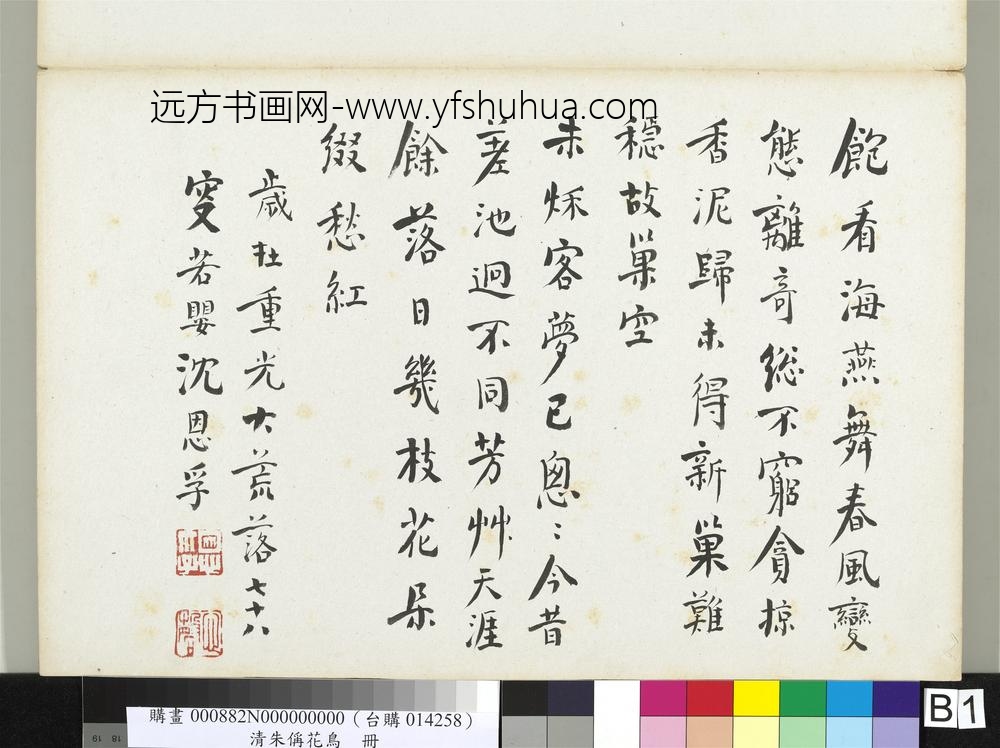 远方书画网-www.yfshuhua.com
飽看海燕舞春風變
態離奇總不窮貪掠
香泥歸未得新巢難
穩故巢空
未穌客夢已悤〻今昔
差池迥不同芳艸天涯
餘落日幾枝花朵
綴愁紅
歲在重光大荒落七十八
叟若嬰沈恩孚
購畫 000882N000000000 (台購 014258)
清朱偁花鳥 冊
B1
19 18